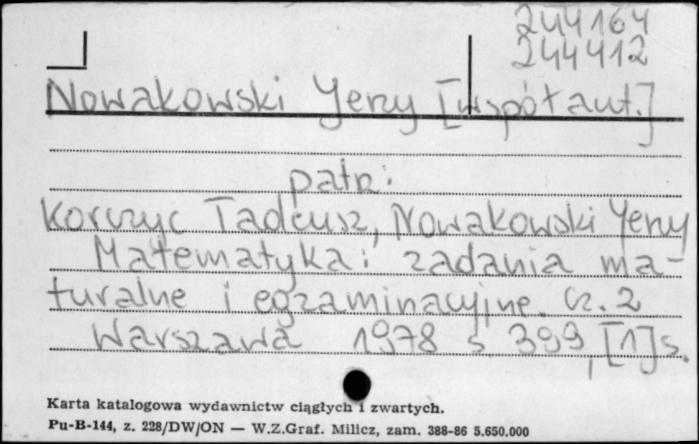 244164
244412
Nowakowski Jerzy [współaut.]
patrz:
Korczyc Tadeusz, Nowakowski Jerzy
Matematyka: zadania ma-
turalne i egzaminacyjne. Cz. 2
Warszawa 1978 s 399, [1] s.
Karta katalogowa wydawnictw ciągłych i zwartych.
Pu-B-144, z. 228/DW/ON — W.Z.Graf. Milicz, zam. 388-86 5.650.000